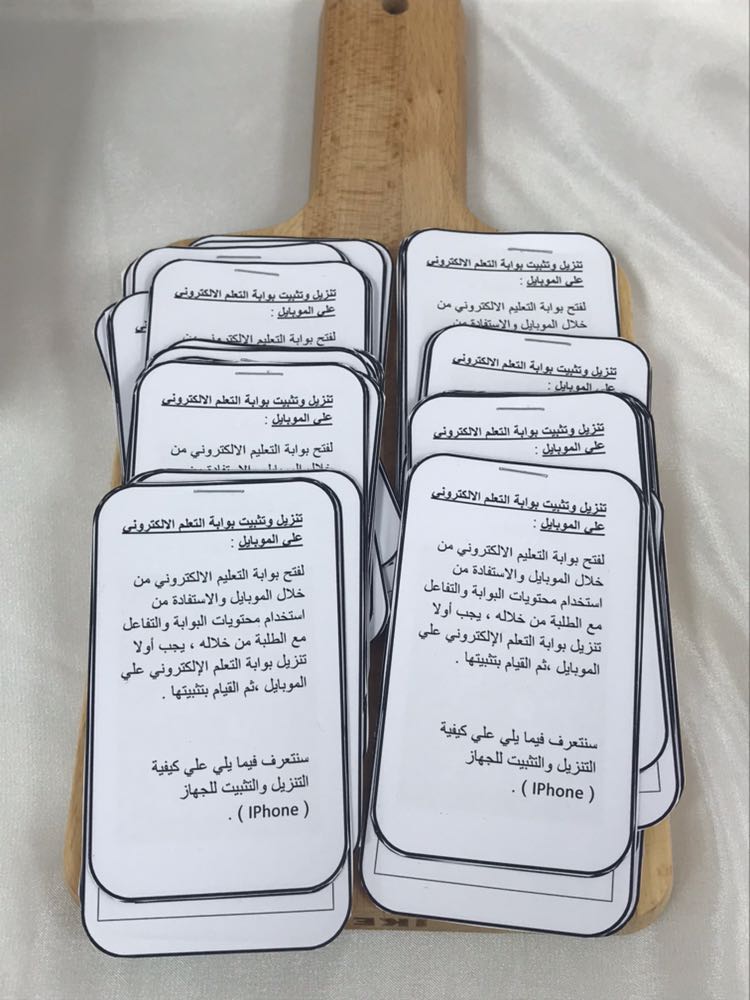 تنزيل وتثبيت بوابة التعلم الالكتروني
علي الموبايل :
لفتح بوابة التعليم الالكتروني من
خلال الموبايل والاستفادة من
تنزيل وتثبيت بوابة التعلم الالكتروني
علي الموبايل :
تنزيل وتثبيت بوابة التعلم الالكتروني
علي الموبايل :
تنزيل وتثبيت بوابة التعلم الالكتروني
علي الموبايل :
لفتح بوابة التعليم الالكتروني من
خلال الموبايل والاستفادة من
استخدام محتويات البوابة والتفاعل
مع الطلبة من خلاله ، يجب أولا
تنزيل بوابة التعلم الإلكتروني علي
الموبايل ،ثم القيام بتثبيتها .
سنتعرف فيما يلي علي كيفية
التنزيل والتثبيت للجهاز
( IPhone ) .
تنزيل وتثبيت بوابة التعلم الالكتروني
علي الموبايل :
لفتح بوابة التعليم الالكتروني من
تنزيل وتثبيت بوابة التعلم الالكتروني
علي الموبايل :
لفتح بوابة التعليم الالكتروني من
خلال الموبايل والاستفادة من
تنزيل وتثبيت بوابة التعلم الالكتروني
علي الموبايل :
لفتح بوابة التعليم الالكتروني من
خلال الموبايل والاستفادة من
استخدام محتويات البوابة والتفاعل
مع الطلبة من خلاله ، يجب أولا
تنزيل بوابة التعلم الإلكتروني علي
الموبايل ،ثم القيام بتثبيتها .
سنتعرف فيما يلي علي كيفية
التنزيل والتثبيت للجهاز
( IPhone ) .